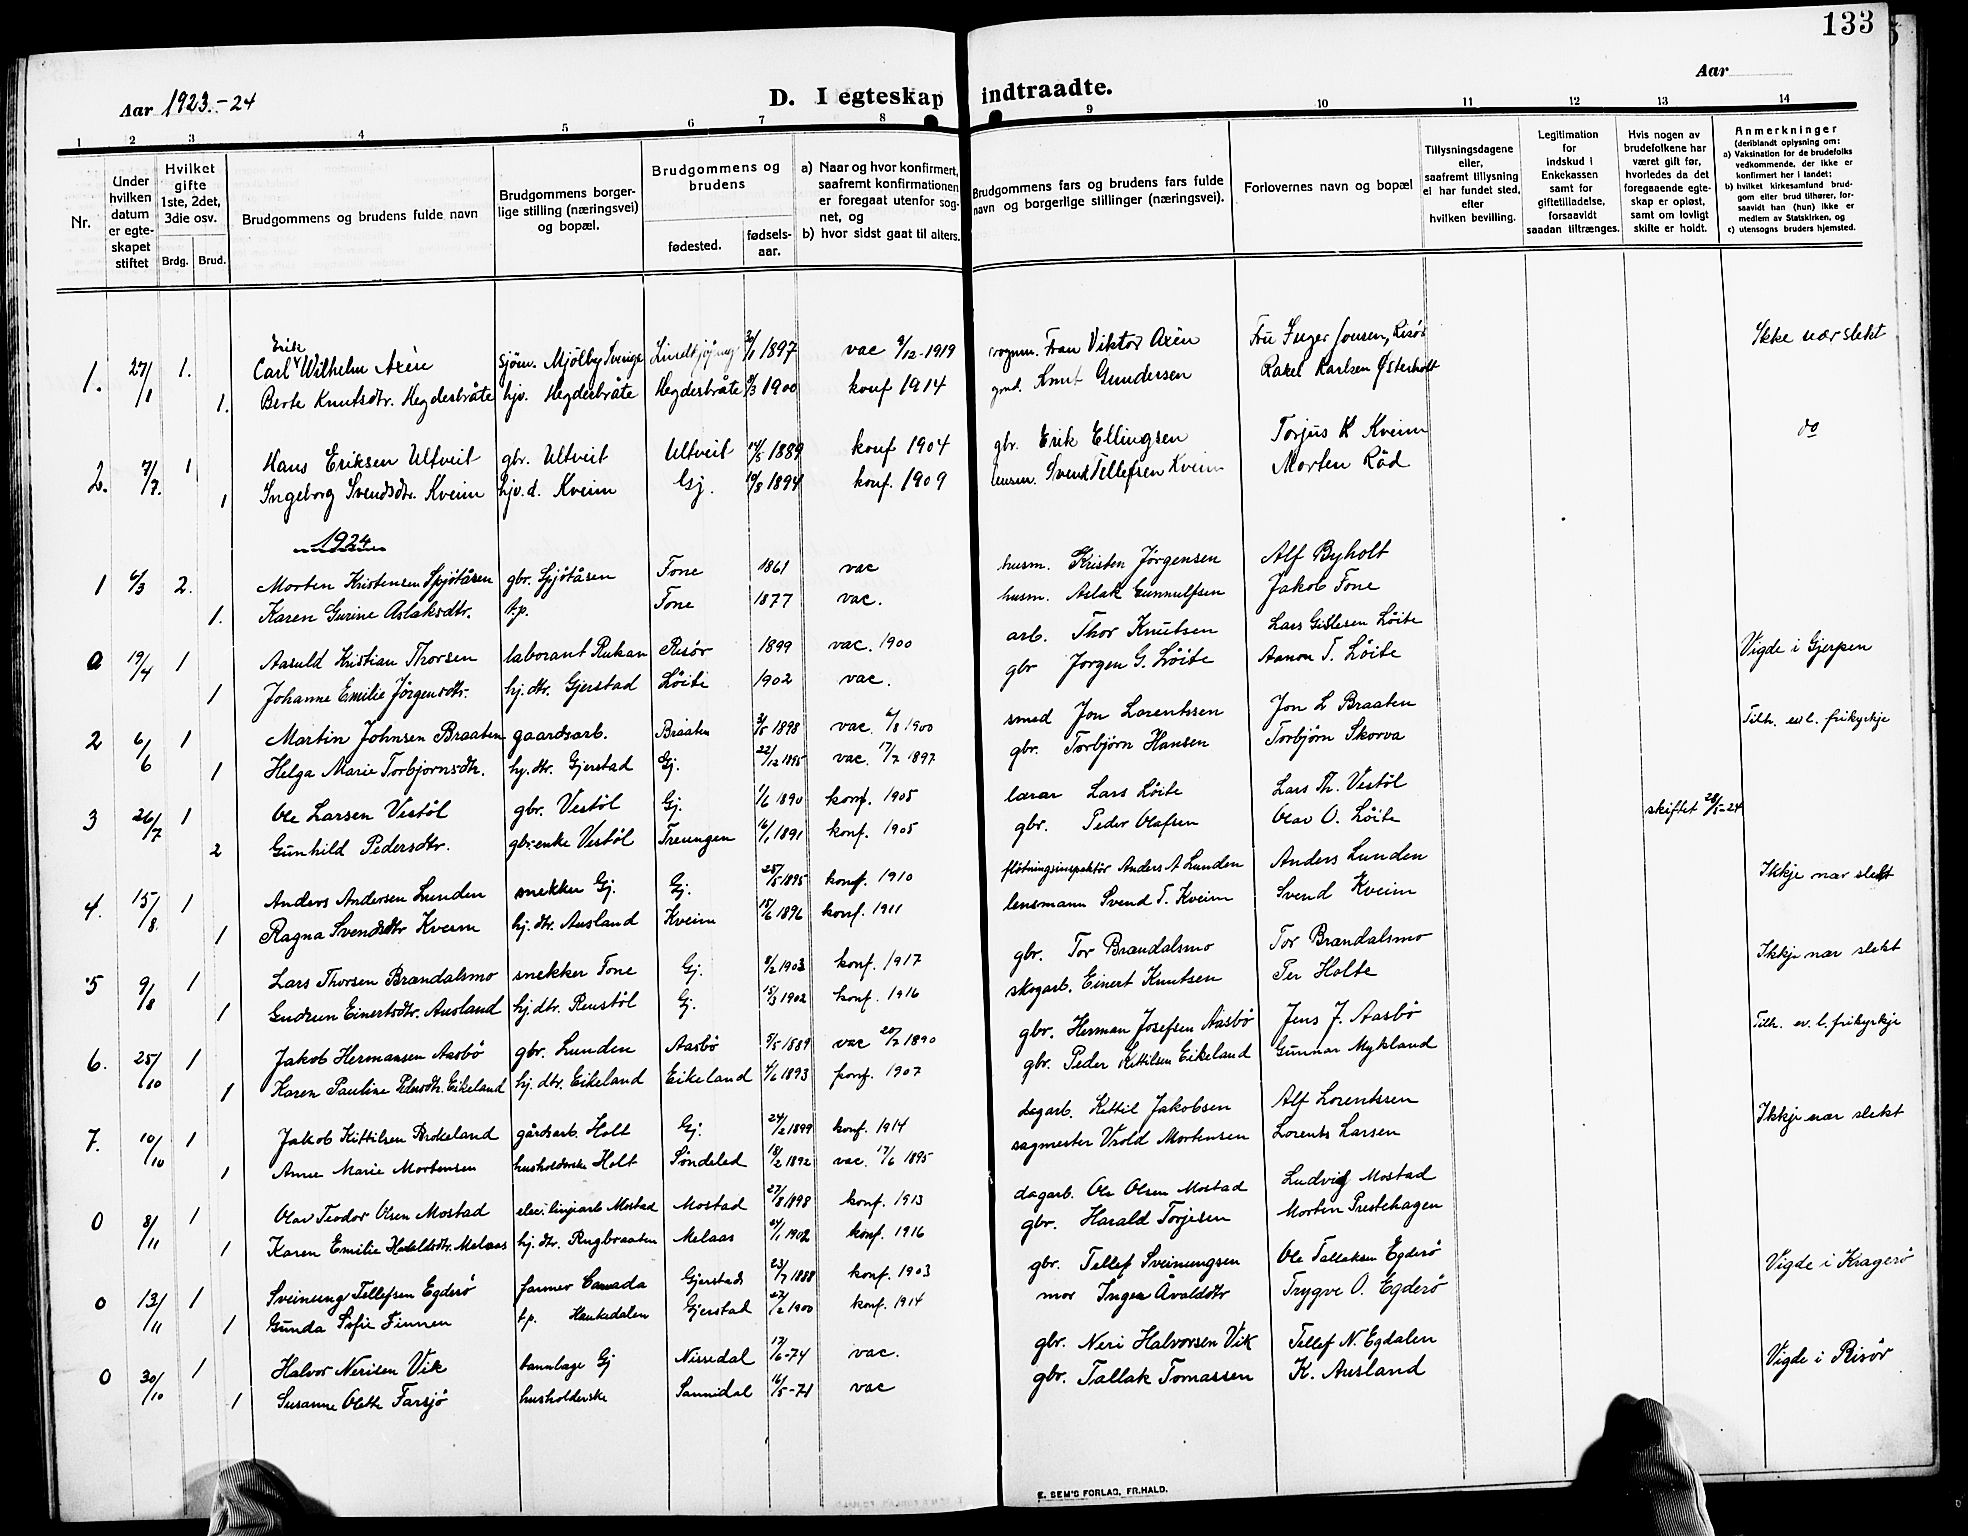 133
Aar 1923.-24
D. I egteskap indtraadte.
Aar
1 2 3 4 5 6 7 8 9 10 11 12 13 14
Nr.
Under hvilken datum er egteskapet stiftet
Hvilket gifte 1ste, 2det, 3die osv.
Brdg. Brud.
Brudgommens og brudens fulde navn
Brudgommens borgerlige stilling (næringsvei) og bopæl.
Brudgommens og brudens
fødested. fødselsaar.
a) Naar og hvor konfirmert, saafremt konfirmationen er foregaat utenfor sognet, og
b) hvor sidst gaat til alters.
Brudgommens fars og brudens fars fulde navn og borgerlige stillinger (næringsvei).
Forlovernes navn og bopæl
Tillysningsdagene eller, saafremt tillysning ei har fundet sted, efter hvilken bevilling.
Legitimation for indskud i Enkekassen samt for giftetilladelse, forsaavidt saadan tiltrænges.
Hvis nogen av brudefolkene har været gift før, hvorledes da det foregaaende egteskap er opløst, samt om lovligt skifte er holdt.
Anmerkninger (deriblandt oplysning om:
a) Vaksination for de brudefolks vedkommende, der ikke er konfirmert her i landet;
b) hvilket kirkesamfund brudgom eller brud tilhører, forsaavidt han (hun) ikke er medlem av Statskirken, og
c) utensogns bruders hjemsted.
1. 27/1 1. Carl Erik Wilhelm Axèn sjöm. Mjölby Sverige 1897 vac 9/12-1919 Fran Viktor Axèn Fru Inger Jonsen, Risör Ikke nær slekt
1. Berte Knutsdtr. Hegdesbråte hjv. Hegdesbråte Hegdesbråte 9/3 1900 konf 1914 Knut Gundersen Rakel Karlsen Østerholt
2. 7/7. 1 Hans Eriksen Ultveit gbr. Ultveit Ultveit 14/5 1889 konf 1904 gbr. Erik Ellingsen Torjus K Kveim do
1 Ingeborg Svendsdtr. Kveim hjv.d. Kveim Gj. 19/8 1894 konf. 1909 lensm. Svend Tellefsen Kveim Morten Råd
1924
1 6/3 2. Morten Kristensen Spjötåsen gbr. Spjötåsen Tone 1861 vac husm. Kristen Jörgensen Alf Byholt
1. Karen Gurine Aslaksdtr. t.p. Tone 1877 vac. husm. Aslak Gunnulfsen Jakob Tone
0 19/4 1 Aasuld Kristian Thorsen laborant Rukan Risør 1899 vac. 1900 arb. Thor Knutsen Lars Gislesen Löite Vigde i Gjerpen
1 Johanne Emilie Jörgensdtr. hj.dtr. Gjerstad Löite 1902 vac. gbr Jorgen G. Löite Aanon T. Löite
2 6/6 1 Martin Johnsen Braaten gaardsarb. Braaten 3/5 1898 vac. 6/8 1900 smed Jon Lorentssen Jon L Braaten Tilh. ev. l. frikyrkje
1 Helga Marie Torbjornsdtr. hj.dtr. Gjerstad Gj. 22/12 1895 vac. 17/7 1897 gbr. Torbjörn Hansen Torbjörn Skorva
3 26/7 1 Ole Larsen Vestöl gbr. Vestöl Gj. 1/6 1890 konf. 1905 lærar Lars Löite Lars Th. Vestöl skiftet 28/5-24
2 Gunhild Pedersdtr. gbr.enke Vestöl Treungen 16/1 1891 konf. 1905 gbr. Peder Olafsen Olav O. Löite
4. 15/8. 1 Anders Andersen Lunden snekker Gj. Gj. 25/5 1895 konf. 1910 flötningsinspektör Anders A Lunden Anders Lunden Ikkje nær slekt
1 Ragna Svendsdtr Kveim hj. dtr. Ausland Kveim 15/6 1896 konf. 1911 lensmann Svend T. Kveim Svend Kveim
5 9/8 1 Lars Thorsen Brandalsmo snekker Tone Gj. 9/2 1903 konf. 1917 gbr. Tor Brandalsmo Tor Brandalsmo Ikkje nær slekt
1 Gudrun Einertsdtr. Ausland hj.dtr. Renstöl Gj. 15/3 1902 konf. 1916 skogarb. Einert Knutsen Ter Holte
6. 25/10 1 Jakob Hermansen Aasbö gbr. Lunden Aasbö 9/5 1889 vac 20/7 1890 gbr. Herman Josefsen Aasbö Jens J. Aasbö Tilh. ev. l. frikyrkje
1 Karen Pauline Pedersdtr. Eikeland hj. dtr. Eikeland Eikeland 4/6 1893 konf. 1907 gbr. Peder Kittilsen Eikeland Gunnar Mykland
7. 10/10 1 Jakob Kittilsen Brokeland gårdsarb. Holt Gj. 24/2 1899 konf. 1914 dagarb. Kittil Jakobsen Alf Lorentssen Ikkje nær slekt
1 Anne Marie Mortensen husholderske Holt Söndeled 18/2 1892 vac. 17/6 1895 sagmester Vrold Mortensen Lorents Larsen
0 8/11 1 Olav Teodor Olsen Mostad elec. linjearb Mostad Mostad 27/8 1898 konf. 1913 dagarb. Ole Olsen Mostad Ludvig Mostad
1 Karen Emilie Haraldsdtr. Melaas hj. dtr. Rugbraaten Melaas 24/1 1902 konf. 1916 gbr. Harald Torjesen Morten Prestehagen
0 13/11 1 Sveinung Tellefsen Egderö farmer Canada Gjerstad 23/7 1888 konf. 1903 gbr. Tellef Sveinungsen Ole Tallaksen Egderö Vigde i Kragerö
1 Gunda Sofie Finnen t.p. Haukedalen Gjerstad 27/2 1900 konf. 1914 mor Inger Åvaldsdtr Trygve O. Egderö
0 30/10 1 Halvor Nerisen Vik tannlæge Gj Nissedal 17/6-74 vac. gbr. Neri Halvorsen Vik Tellef N. Egdalen Vigde i Risör
1 Susanne Olette Farsjö husholderske Sannidal 16/5-71 vac gbr. Tallak Tomassen K. Ausland
E. SEM'S FORLAG, FR.HALD.